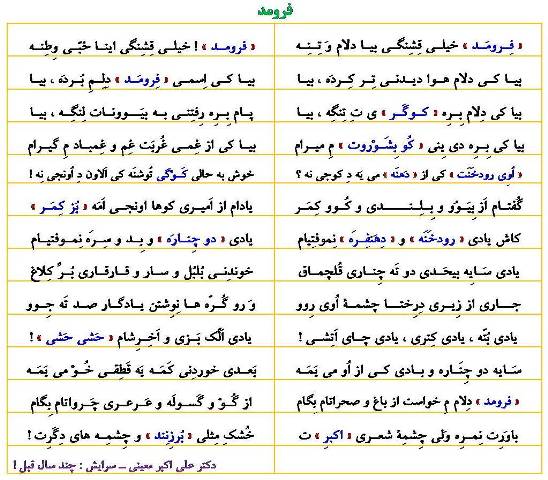 فرومد
« فِرومَد » خیلی قِشنگی بیا دلام وَ تِـنِه
« فرومد » ! خیلی قِشنگی اینا حُبّی وطِنه
بیـا کی دلام هـوا دیدنـی تِـر کِـردَه ، بیـا
بیـا کی اِسمـی « فِرومَد » دِلِـم بُردَه ، بیـا
بیا کی دِلام بِره « کـوگَـر » ی تِ تِنگِه ، بیا
پـام بِـره رِفتنـی به بیـوونـات لِنگِـه ، بیـا
بیا کی بِره دی یِنی « کُو بِشوْرُوت » مِ میرام
بیـا کی از غِمـی غُربَت غِم و غِمباد مِ گیرام
« اُوی رودخَنَت » کی از « دَهنَه » می یَه دِ کوجی نه ؟
خوش به حالی کَوْگی تُوشنَه کی اَلاون دِ اُونجی نِه !
گُفتـام اَز بیَوو و بِـلِنـدی و کُـوو کِمَـر
یادام از اَمیـری کوها اونجـی اَمَه « بُز کِمَـر »
کاش یادی « رودخَنَه » و « دِهنَفِـرَه » نِموفتِیام
یادی « دو چِنارَه » و بِـد و سِرَه نِموفتیام
یادی سَایه بیحَدی دو تَه چِناری قُلچماق
خوندَنـی بُلبُل و سار و قارقاری پُـرّ کِلاغ
جـاری از زیـری دِرختـا چِشمـهٔ اُوی رِوو
وَ رو کُـرّه هـا نِوِشتن یادگـار صـد تَه جـوو
یادی بُتّه ، یادی کِتری ، یادی چای اَتِشی !
یادی اَلَک بَـزی و آخِـرِشام « حَشی حَشی » !
سَایه دو چِنَـاره و بـادی کـی از اُو مـی یَمَـه
بَعـدی خوردنـی کَمَـه یَه قَطِقـی خُـوْ مـی یَمَـه
« فرومد » دِلام مِ خواست از باغ و صَحراتام بِگام
از کُـوْ و گَسولَـه و عَـرعَـری چَـرواتام بِگام
باوِرِت نِمِـره وَلی چِشمهٔ شعـری « اکبر » ت
خُشکِ مِثلی « بُرزِنِند » و چِشمِـه های دِگَرِت !
دکتر علی اکبر معینی ــ سرایش : چند سال قبل !